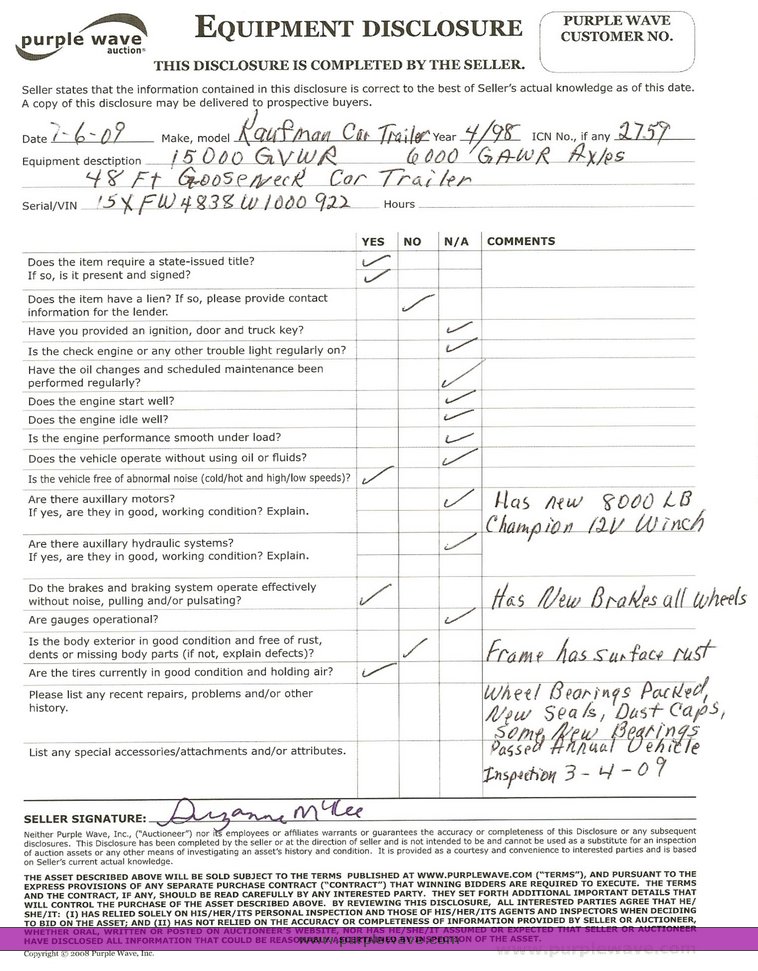 purple wave
auction®
EQUIPMENT DISCLOSURE
PURPLE WAVE
CUSTOMER NO.
THIS DISCLOSURE IS COMPLETED BY THE SELLER.
Seller states that the information contained in this disclosure is correct to the best of Seller's actual knowledge as of this date.
A copy of this disclosure may be delivered to prospective buyers.
Date 7-6-09 Make, model Kaufman Car Trailer Year 4/98 ICN No., if any 2759
Equipment desctiption 15000 GVWR 6000 GAWR Axles
48 Ft Gooseneck Car Trailer
Serial/VIN 15XFW4838W1000922 Hours
YES NO N/A COMMENTS
Does the item require a state-issued title?
If so, is it present and signed?
Does the item have a lien? If so, please provide contact
information for the lender.
Have you provided an ignition, door and truck key?
Is the check engine or any other trouble light regularly on?
Have the oil changes and scheduled maintenance been
performed regularly?
Does the engine start well?
Does the engine idle well?
Is the engine performance smooth under load?
Does the vehicle operate without using oil or fluids?
Is the vehicle free of abnormal noise (cold/hot and high/low speeds)?
Are there auxillary motors? Has new 8000 LB
If yes, are they in good, working condition? Explain. Champion 12V Winch
Are there auxillary hydraulic systems?
If yes, are they in good, working condition? Explain.
Do the brakes and braking system operate effectively
without noise, pulling and/or pulsating? Has New Brakes all wheels
Are gauges operational?
Is the body exterior in good condition and free of rust,
dents or missing body parts (if not, explain defects)? Frame has surface rust
Are the tires currently in good condition and holding air?
Please list any recent repairs, problems and/or other Wheel Bearings Packed,
history. New Seals, Dust Caps,
Some New Bearings
List any special accessories/attachments and/or attributes. Passed Annual Vehicle
Inspection 3-4-09
SELLER SIGNATURE: Suzanne McKee
Neither Purple Wave, Inc., ("Auctioneer") nor its employees or affiliates warrants or guarantees the accuracy or completeness of this Disclosure or any subsequent
disclosures. This Disclosure has been completed by the seller or at the direction of seller and is not intended to be and cannot be used as a substitute for an inspection
of auction assets or any other means of investigating an asset's history and condition. It is provided as a courtesy and convenience to interested parties and is based
on Seller's current actual knowledge.
THE ASSET DESCRIBED ABOVE WILL BE SOLD SUBJECT TO THE TERMS PUBLISHED AT WWW.PURPLEWAVE.COM ("TERMS"), AND PURSUANT TO THE
EXPRESS PROVISIONS OF ANY SEPARATE PURCHASE CONTRACT ("CONTRACT") THAT WINNING BIDDERS ARE REQUIRED TO EXECUTE. THE TERMS
AND THE CONTRACT, IF ANY, SHOULD BE READ CAREFULLY BY ANY INTERESTED PARTY. THEY SET FORTH ADDITIONAL IMPORTANT DETAILS THAT
WILL CONTROL THE PURCHASE OF THE ASSET DESCRIBED ABOVE. BY REVIEWING THIS DISCLOSURE, ALL INTERESTED PARTIES AGREE THAT HE/
SHE/IT: (I) HAS RELIED SOLELY ON HIS/HER/ITS PERSONAL INSPECTION AND THOSE OF HIS/HER/ITS AGENTS AND INSPECTORS WHEN DECIDING
TO BID ON THE ASSET; AND (II) HAS NOT RELIED ON THE ACCURACY OR COMPLETENESS OF INFORMATION PROVIDED BY SELLER OR AUCTIONEER,
WHETHER ORAL, WRITTEN OR POSTED ON AUCTIONEER'S WEBSITE, NOR HAS HE/SHE/IT ASSUMED OR EXPECTED THAT SELLER OR AUCTIONEER
HAVE DISCLOSED ALL INFORMATION THAT COULD BE INSPECTION OF THE ASSET.
www.purplewave.com
www.purplewave.com
Copyright © 2008 Purple Wave, Inc.